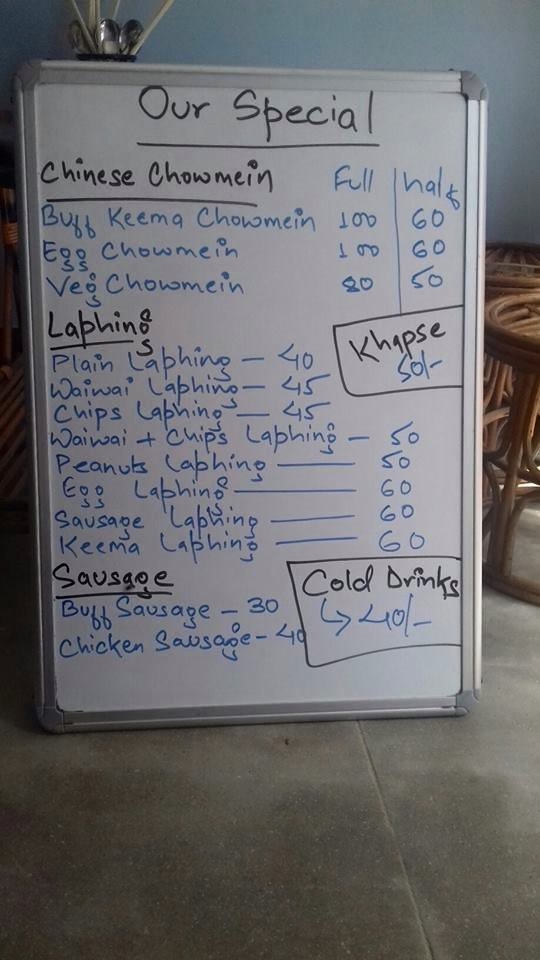 Our Special
Chinese Chowmein Full half
Buff Keema Chowmein 100 60
Egg Chowmein 100 60
Veg Chowmein 80 50
Laphing
Plain Laphing — 40
Waiwai Laphing — 45
Chips Laphing — 45
Waiwai + Chips Laphing — 50
Peanuts Laphing — 50
Egg Laphing — 60
Sausage Laphing — 60
Keema Laphing — 60
Khapse
50/-
Sausage
Buff Sausage — 30
Chicken Sausage - 40
Cold Drinks
↳ 40/-